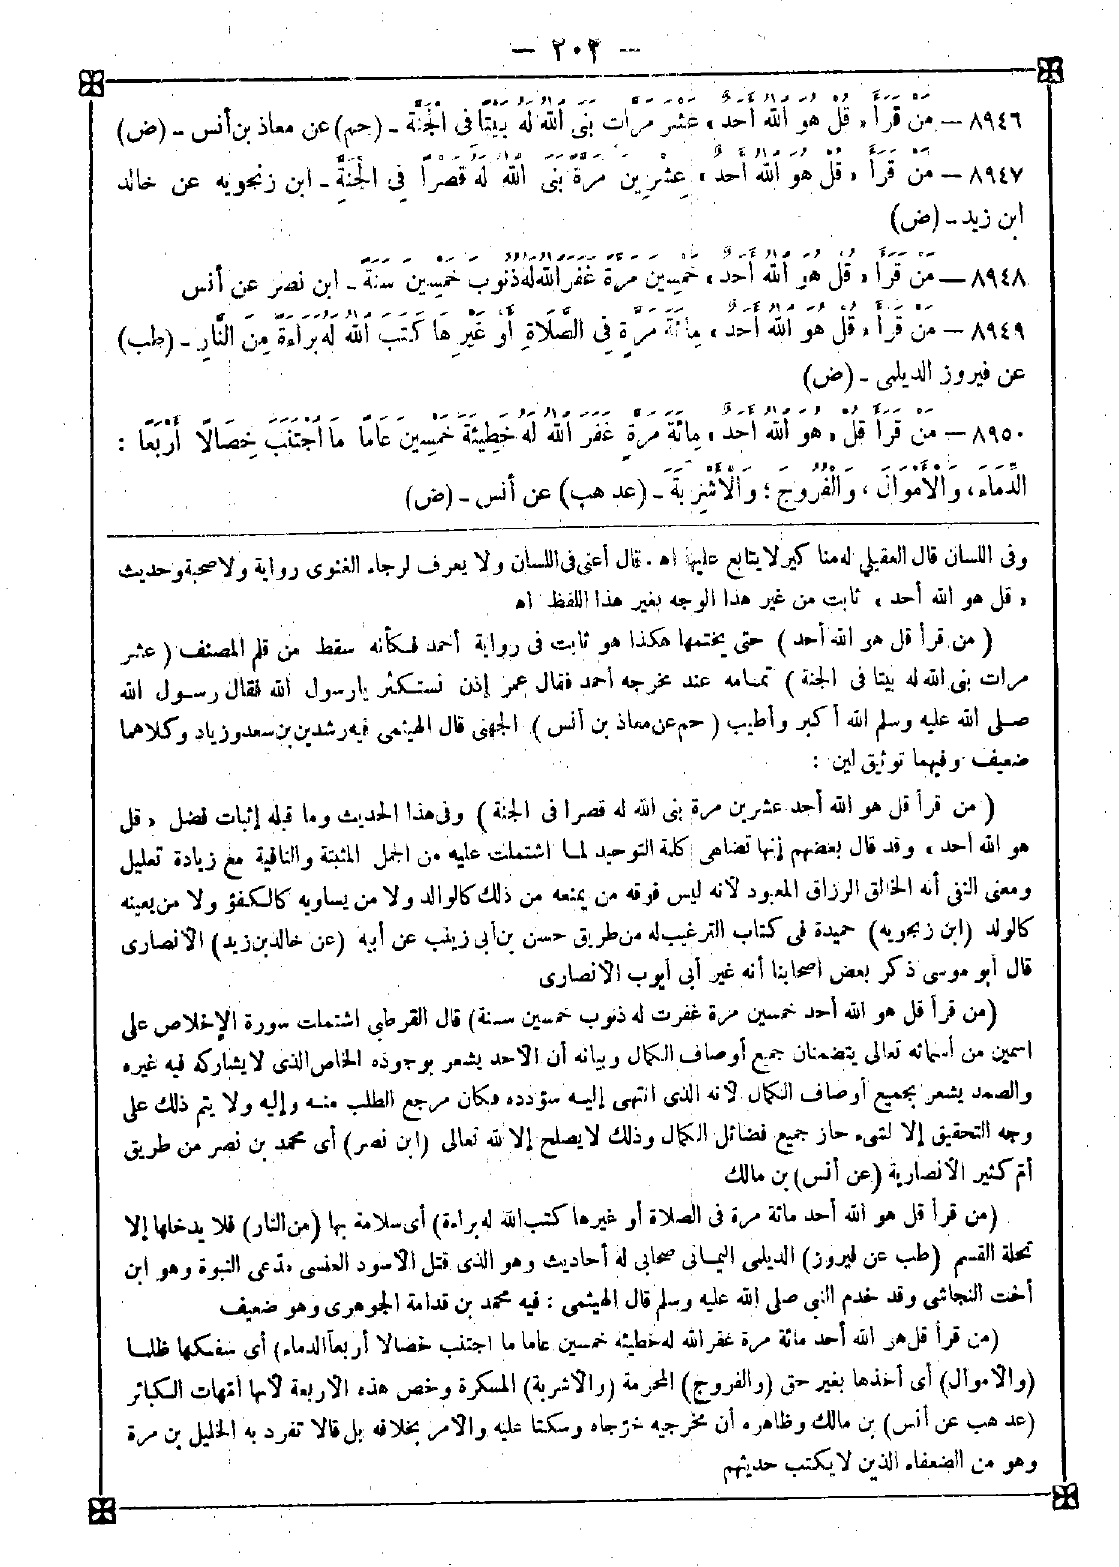 — ٢٠٣ —
٨٩٤٦ — مَنْ قَرَأَ «قُلْ هُوَ اللهُ أَحَدٌ» عَشْرَ مَرَّاتٍ بَنَى اللهُ لَهُ بَيْتًا فِى الْجَنَّةِ - (حم) عن معاذ بن أنس - (ض)
٨٩٤٧ — مَنْ قَرَأَ «قُلْ هُوَ اللهُ أَحَدٌ» عِشْرِينَ مَرَّةً بَنَى اللهُ لَهُ قَصْرًا فِى الْجَنَّةِ - ابن زنجويه عن خالد
ابن زيد - (ض)
٨٩٤٨ — مَنْ قَرَأَ «قُلْ هُوَ اللهُ أَحَدٌ» خَمْسِينَ مَرَّةً غَفَرَ اللهُ لَهُ ذُنُوبَ خَمْسِينَ سَنَةً - ابن نصر عن أنس
٨٩٤٩ — مَنْ قَرَأَ «قُلْ هُوَ اللهُ أَحَدٌ» مِائَةَ مَرَّةٍ فِى الصَّلَاةِ أَوْ غَيْرِهَا كَتَبَ اللهُ لَهُ بَرَاءَةً مِنَ النَّارِ - (طب)
عن فيروز الديلمى - (ض)
٨٩٥٠ — مَنْ قَرَأَ قُلْ «هُوَ اللهُ أَحَدٌ» مِائَةَ مَرَّةٍ غَفَرَ اللهُ لَهُ خَطِيئَةَ خَمْسِينَ عَامًا مَا اجْتَنَبَ خِصَالًا أَرْبَعًا :
الدِّمَاءَ، وَالْأَمْوَالَ، وَالْفُرُوجَ؛ وَالْأَشْرِبَةَ - (عد هب) عن أنس - (ض)
وفى اللسان قال العقيلى له مناكير لا يتابع عليها اه. قال أعنى فى اللسان ولا يعرف لرجاء الغنوى رواية ولا صحبة وحديث
«قل هو الله أحد» ثابت من غير هذا الوجه بغير هذا اللفظ اه
(من قرأ قل هو الله أحد) حتى يختمها هكذا هو ثابت فى رواية أحمد فكأنه سقط من قلم المصنف (عشر
مرات بنى الله له بيتا فى الجنة) تمامه عند مخرجه أحمد فقال عمر إذن نستكثر يارسول الله فقال رسول الله
صلى الله عليه وسلم الله أكبر وأطيب (حم عن معاذ بن أنس) الجهنى قال الهيثمى فيه رشدين بن سعد وزياد وكلاهما
ضعيف وفيهما توثيق لين :
(من قرأ قل هو الله أحد عشرين مرة بنى الله له قصرا فى الجنة) وفى هذا الحديث وما قبله إثبات فضل «قل
هو الله أحد» وقد قال بعضهم إنها تضاهى كلمة التوحيد لما اشتملت عليه من الجمل المثبتة والنافية مع زيادة تعليل
ومعنى النفى أنه الخالق الرزاق المعبود لأنه ليس فوقه من يمنعه من ذلك كالوالد ولا من يساويه كالكفؤ ولا من يعينه
كالولد (ابن زنجويه) حميدة فى كتاب الترغيب له من طريق حسن بن أبى زينب عن أبيه (عن خالد بن زيد) الأنصارى
قال أبو موسى ذكر بعض أصحابنا أنه غير أبى أيوب الأنصارى
(من قرأ قل هو الله أحد خمسين مرة غفرت له ذنوب خمسين سنة) قال القرطبى اشتملت سورة الإخلاص على
اسمين من أسمائه تعالى يتضمنان جميع أوصاف الكمال وبيانه أن الأحد يشعر بوجوده الخاص الذى لا يشاركه فيه غيره
والصمد يشعر بجميع أوصاف الكمال لأنه الذى انتهى إليه سؤدده فكان مرجع الطلب منه وإليه ولا يتم ذلك على
وجه التحقيق إلا لشىء حاز جميع فضائل الكمال وذلك لا يصلح إلا لله تعالى (ابن نصر) أى محمد بن نصر من طريق
أم كثير الأنصارية (عن أنس) بن مالك
(من قرأ قل هو الله أحد مائة مرة فى الصلاة أو غيرها كتب الله له براءة) أى سلامة بها (من النار) فلا يدخلها إلا
تحلة القسم (طب عن فيروز) الديلمى اليمانى صحابى له أحاديث وهو الذى قتل الأسود العنسى مدعى النبوة وهو ابن
أخت النجاشى وقد خدم النبى صلى الله عليه وسلم قال الهيثمى : فيه محمد بن قدامة الجوهرى وهو ضعيف
(من قرأ قل هو الله أحد مائة مرة غفر الله له خطيئة خمسين عاما ما اجتنب خصالا أربعاً الدماء) أى سفكها ظلما
(والأموال) أى أخذها بغير حق (والفروج) المحرمة (والأشربة) المسكرة وخص هذه الأربعة لأنها أمهات الكبائر
(عد هب عن أنس) بن مالك وظاهره أن مخرجيه خرّجاه وسكتا عليه والأمر بخلافه بل قالا تفرد به الخليل بن مرة
وهو من الضعفاء الذين لا يكتب حديثهم